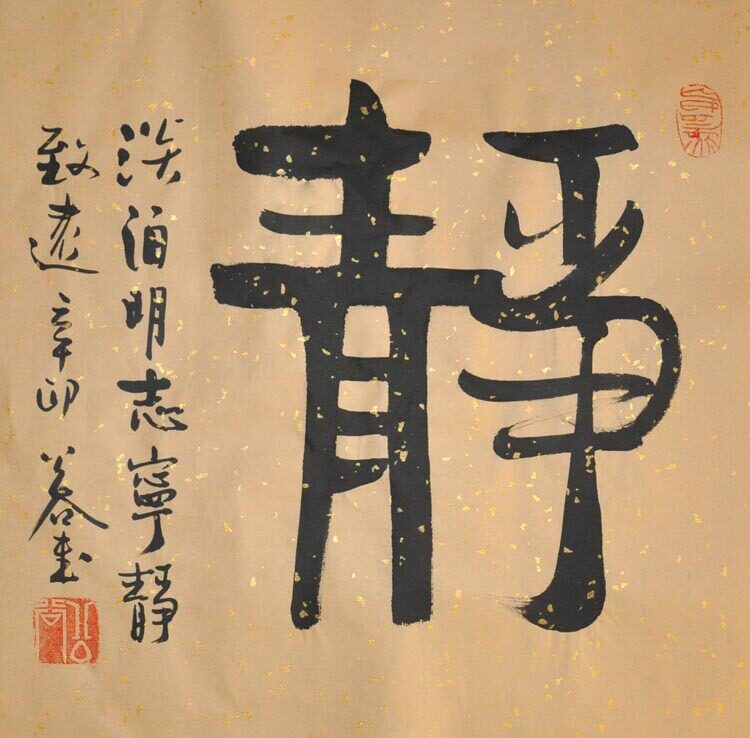 靜
淡泊明志寧靜
致遠辛卯